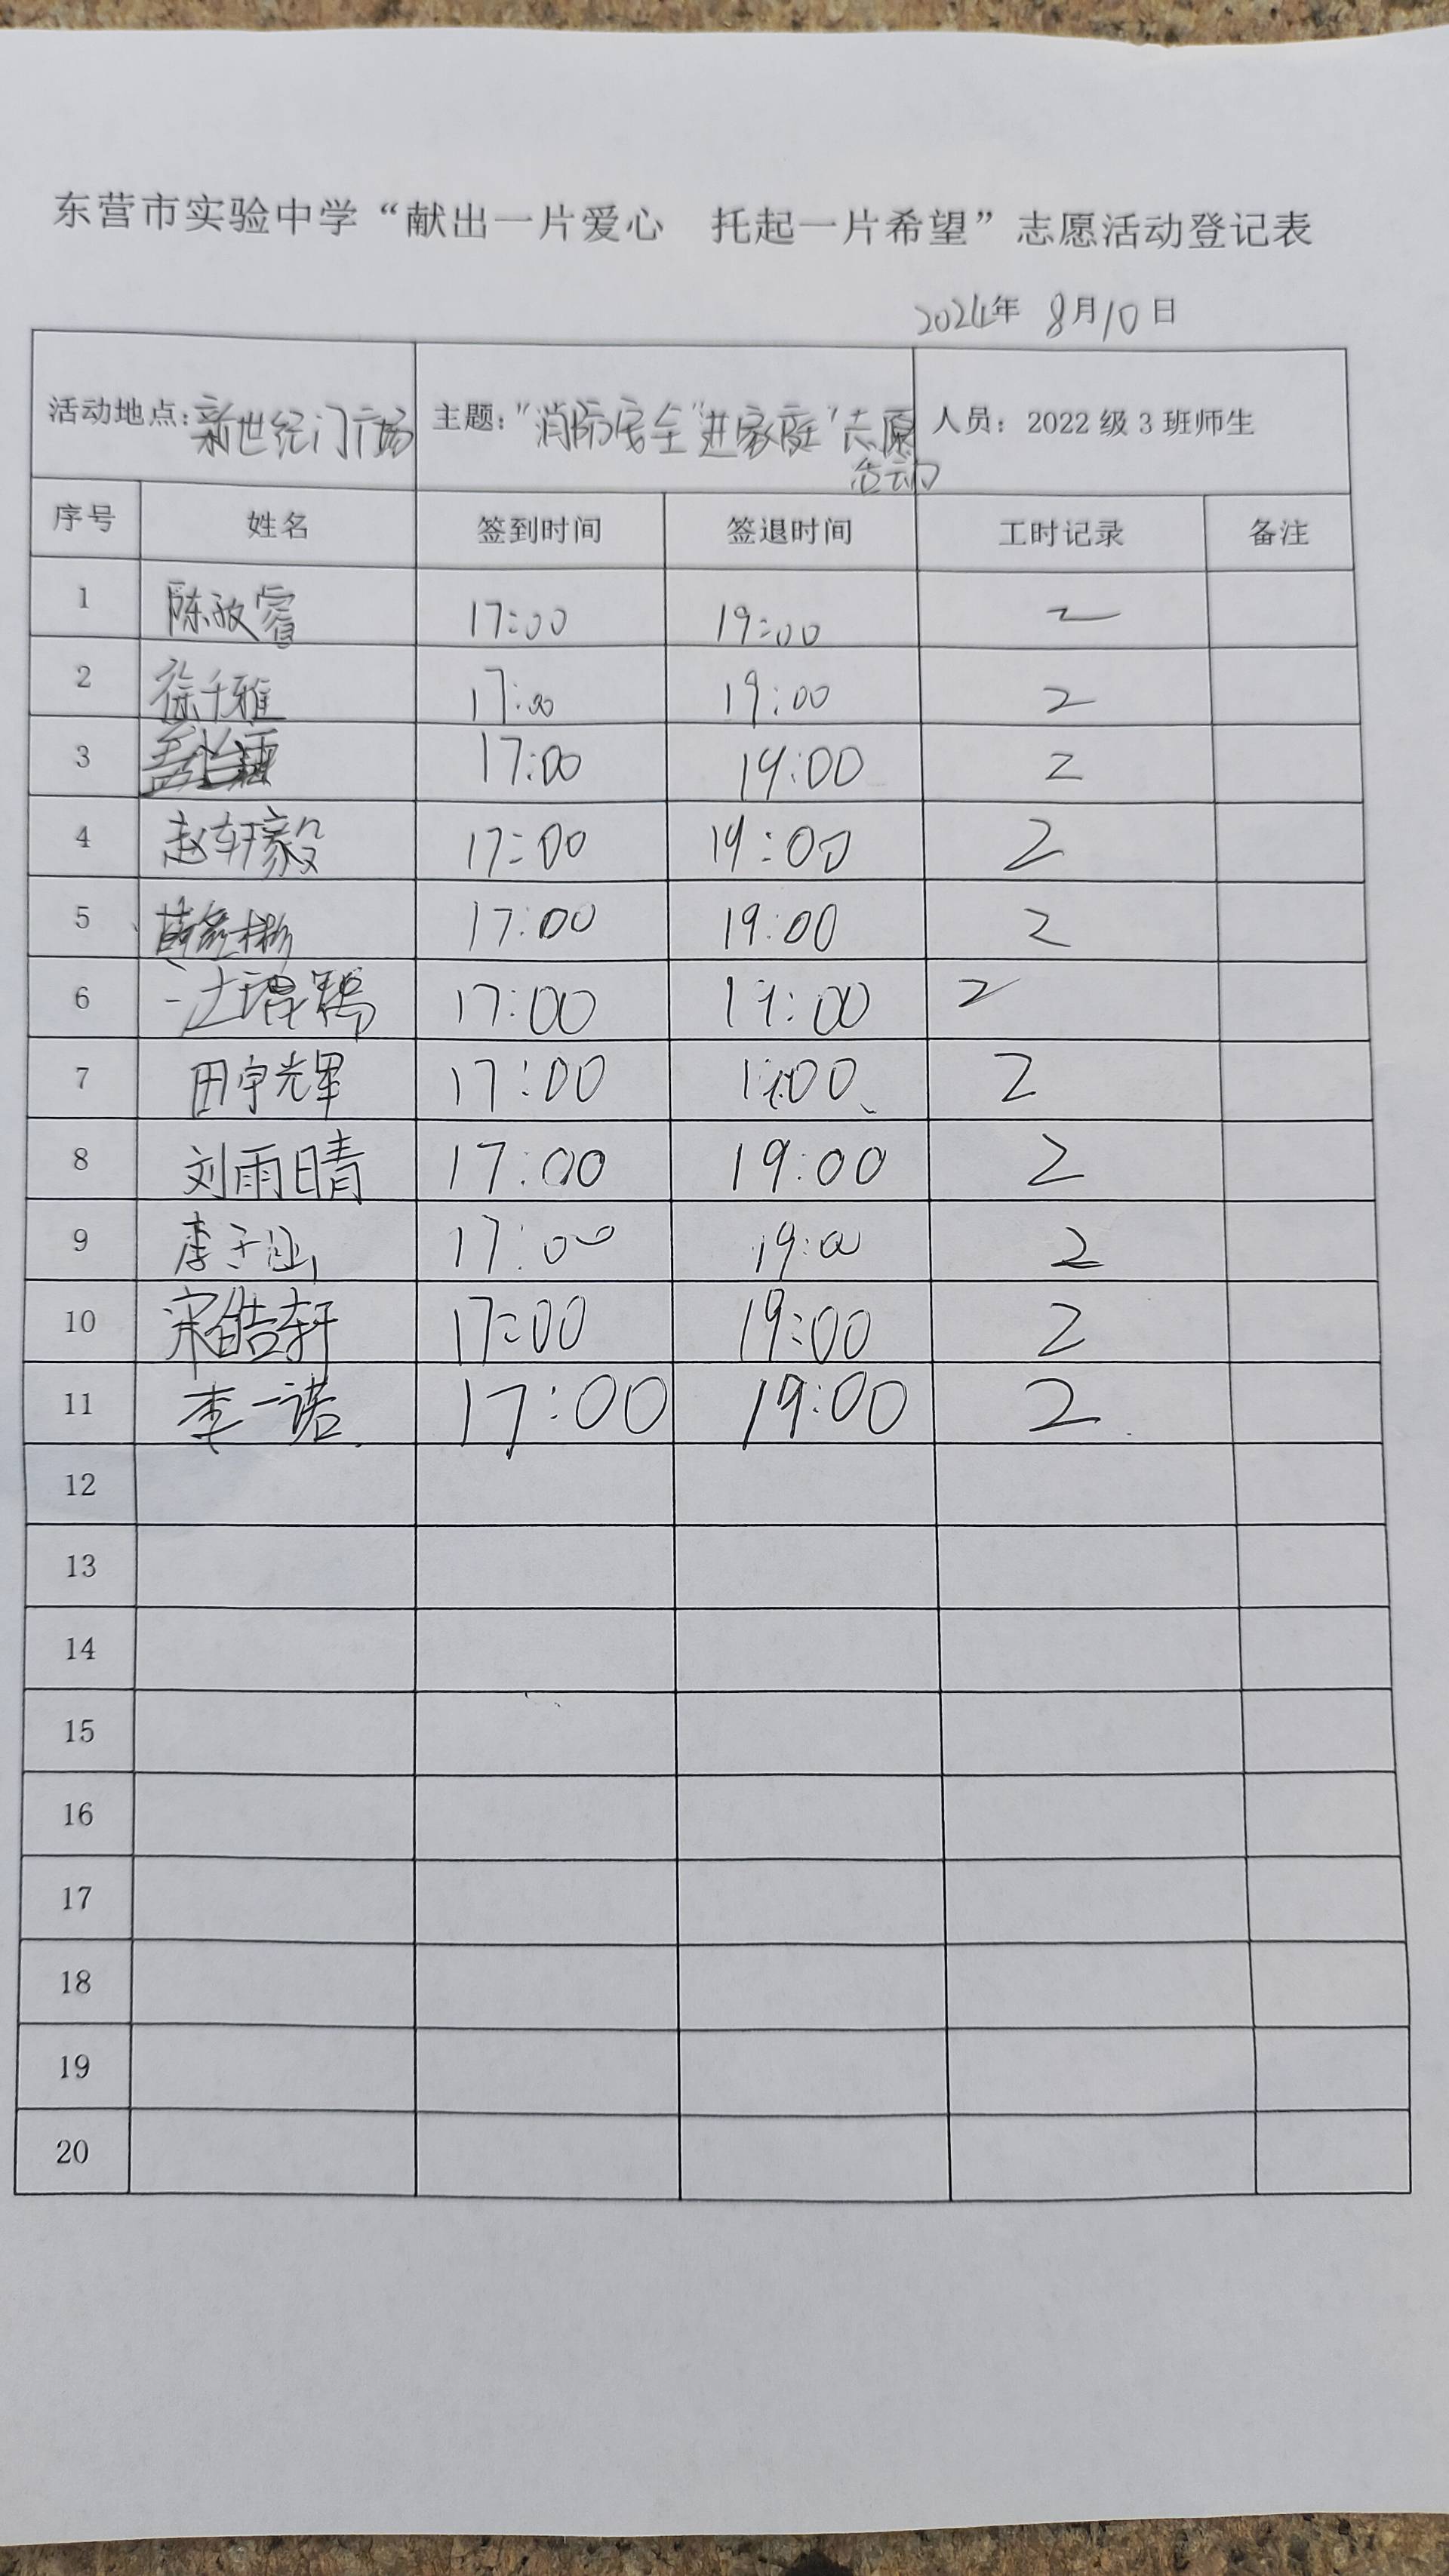 东营市实验中学“献出一片爱心 托起一片希望”志愿活动登记表
2024年 8月10日
活动地点:新世纪门广场 主题:“消防安全“进家庭”志愿活动 人员: 2022 级 3 班师生
序号 姓名 签到时间 签退时间 工时记录 备注
1 陈玫睿 17:00 19:00 2
2 徐千雅 17:00 19:00 2
3 孟 17:00 19:00 2
4 赵轩毅 17:00 19:00 2
5 17:00 19:00 2
6 汪琨鹤 17:00 19:00 2
7 田宇光军 17:00 19:00 2
8 刘雨晴 17:00 19:00 2
9 李子涵 17:00 19:00 2
10 宋皓轩 17:00 19:00 2
11 李一诺 17:00 19:00 2
12
13
14
15
16
17
18
19
20